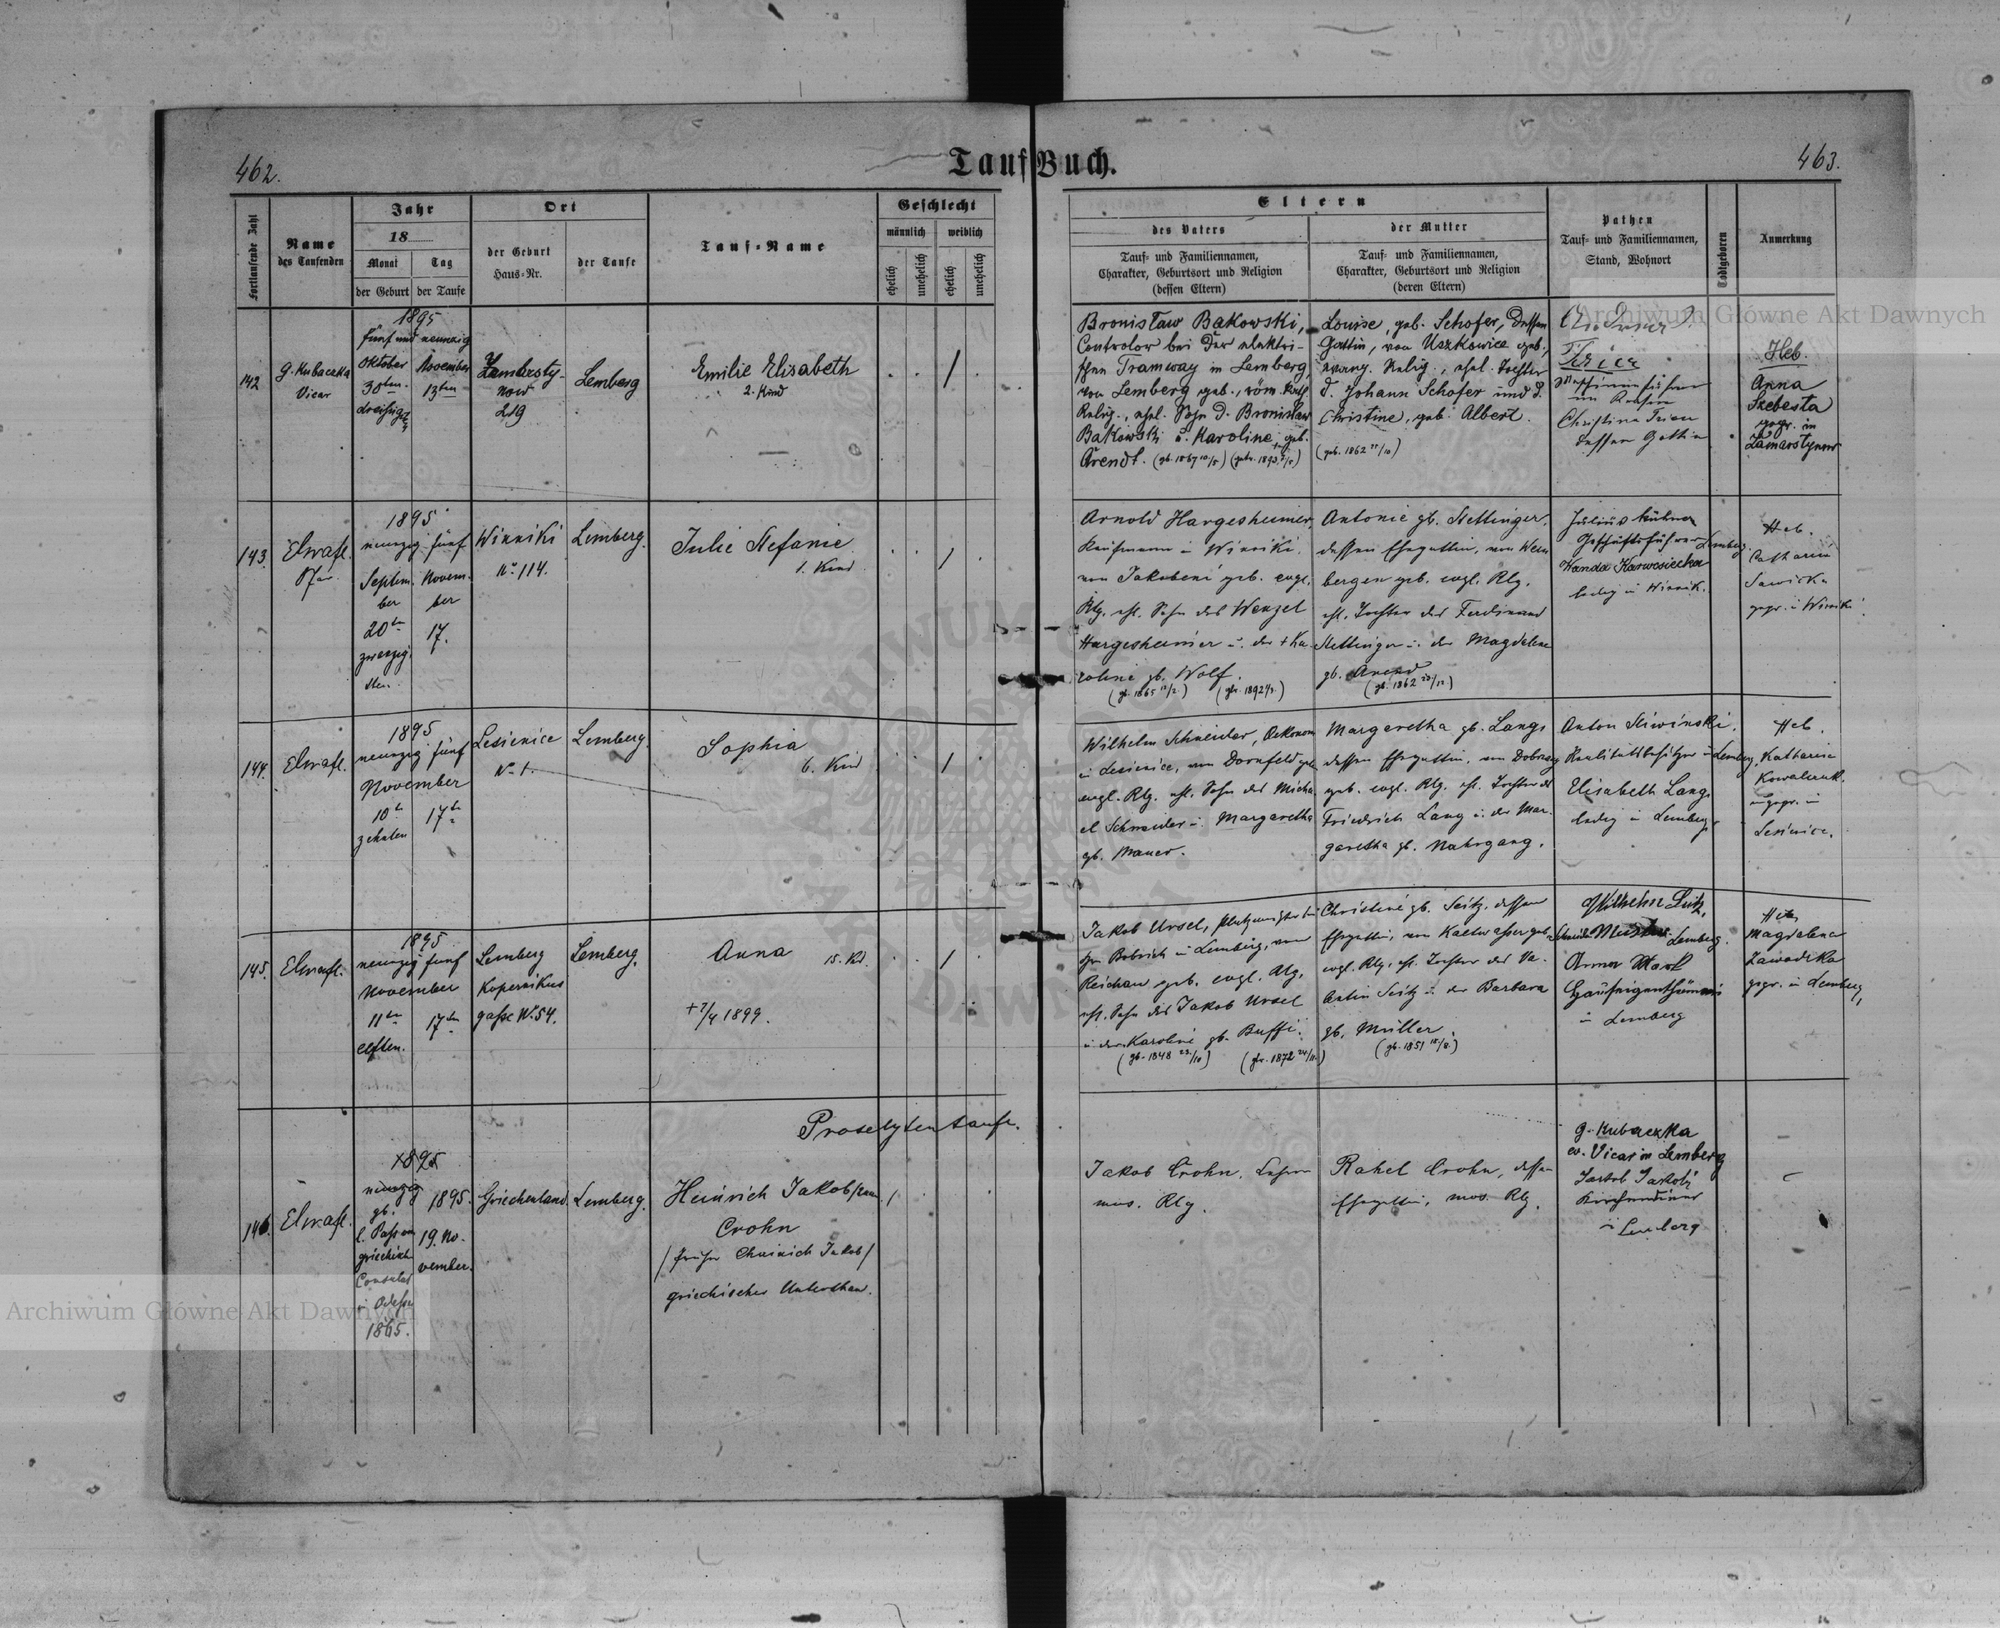 462.
Tauf Buch.
463.
Fortlaufende Zahl
Name
des Taufenden
Jahr
18
Monat
der Geburt
Tag
der Taufe
Ort
der Geburt
Haus-Nr.
der Taufe
Tauf-Name
Geschlecht
männlich
weiblich
ehelich
unehelich
ehelich
unehelich
Eltern
des Vaters
Tauf- und Familiennamen,
Charakter, Geburtsort und Religion
(dessen Eltern)
der Mutter
Tauf- und Familiennamen,
Charakter, Geburtsort und Religion
(deren Eltern)
Pathen
Tauf- und Familiennamen,
Stand, Wohnort
Todtgeboren
Anmerkung
142
G. Kubaczka
Vicar
1895
fünf und neunzig
Oktober
30ten
dreißigst
November
13ten
Zamarsty-
now
219
Lemberg
Emilie Elisabeth
2. Kind
Bronisław Bakowski,
Controlor bei der elektri-
schen Tramway in Lemberg
von Lemberg geb., röm. kath.
Relig., ehel. Sohn d. Bronisław
Bakowski u. Karoline, geb.
Arendt.
Louise, geb. Schofer, dessen
Gattin, von Uszkowice geb.,
evang. Relig., ehel. Tochter
d. Johann Schofer und d.
Christine, geb. Albert.
Christina
dessen Gattin
Heb.
Anna
Szebesta
gepr. in
Zamarstynow
143.
1895
neunzig fünf
Septem-
ber
20
zwanzig-
sten.
Novem-
ber
17.
Winniki
No 114.
Lemberg.
Julie Stefanie
1. Kind
Arnold Hargesheimer,
Kaufmann in Winniki,
von Jakobeni geb. evgl.
Rlg. ehl. Sohn des Wenzel
Hargesheimer u. der + Ka-
roline gb. Wolf.
Antonie gb. Stettinger,
dessen Ehegattin, von Wein-
bergen geb. evgl. Rlg.
ehl. Tochter des Ferdinand
Stettinger u. der Magdalena
gb. Arend
Julius Kühner
Geschäftsführer Lemberg.
Wanda Karwosiecka
ledig in Winnik.
Heb.
Catharina
Sawicka
gepr. in Winniki
144.
1895
neunzig fünf
November
10
zehnten
17
Lesienice
No 1.
Lemberg.
Sophia
6. Kind
Wilhelm Schneider, Oekonom
in Lesienice, von Dornfeld geb.
evgl. Rlg. ehl. Sohn des Micha-
el Schneider u. Margaretha
gb. Mauer.
Margaretha gb. Lang,
dessen Ehegattin, von
geb. evgl. Rlg. ehl. Tochter des
Friedrich Lang u. der Mar-
garetha gb. Nahrgang.
Anton Sliwinski,
Realitätbesitzer in Lemberg,
Elisabeth Lang
ledig in Lemberg
Heb.
Katharina
Kowalczuk
ungepr. in
Lesienice.
145.
1895
neunzig fünf
November
11
elften.
17
Lemberg
Kopernikus
gasse No 54.
Lemberg.
Anna
15. Kd.
+ 7/4 1899.
Jakob Ursel, Platzmeister bei
in Lemberg, von
Reichau geb. evgl. Rlg.
ehl. Sohn des Jakob Ursel
u. der Karoline gb. Buffi.
Christine gb. Seitz, dessen
Ehegattin, von Kaltwasser geb.
evgl. Rlg. ehl. Tochter des Va-
lentin Seitz u. der Barbara
gb. Müller.
Wilhelm
Lemberg.
Hauseigenthümerin
in Lemberg
Heb
Magdalena
Zawadzka
gepr. in Lemberg,
Proselytentaufe.
146.
1895
neunzig
gb.
l. Pass vom
griechisch
Consulat
in Odessa
1865.
1895.
19. No-
vember.
Griechenland.
Lemberg.
Heinrich Jakob
Crohn
/früher Chainich Jakob/
griechischer Unterthan.
Jakob Crohn, Lehrer
mos. Rlg.
Rahel Crohn, dessen
Ehegattin, mos. Rlg.
G. Kubaczka
ev. Vicar in Lemberg
Jakob
Kirchendiener
in Lemberg
Archiwum Główne Akt Dawnych
Archiwum Główne Akt Dawnych